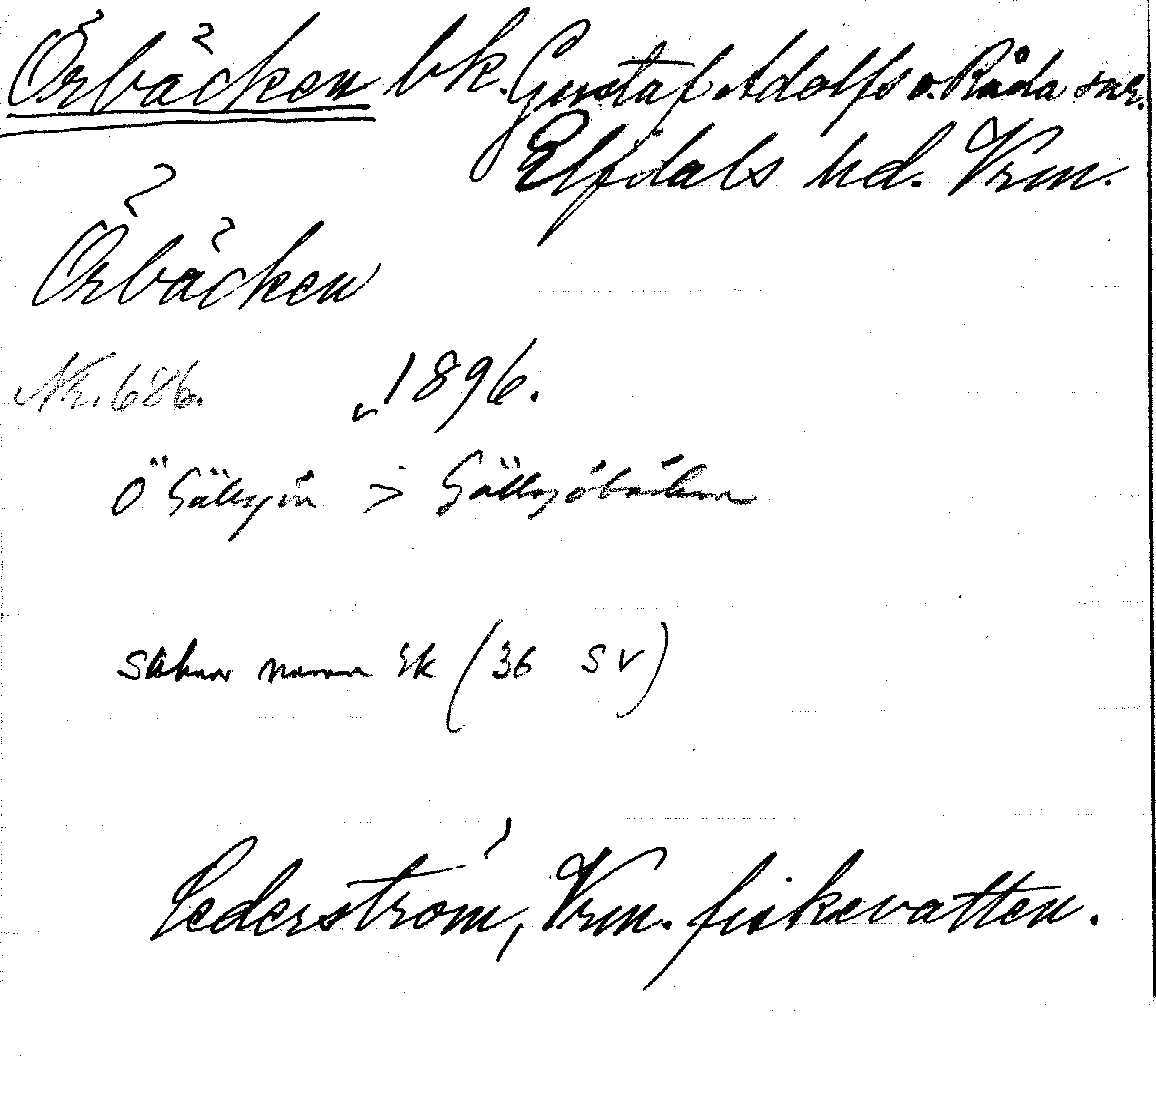 Örbäcken bk. Gustaf Adolfs o. Råda snr.
Elfdals hd. Vrm.
Örbäcken
Nr. 686. 1896.
Ö Gällsjön > Gällsjöbäcken
Saknar namn Ek (36 SV)
Cederström, Vrm. fiskevatten.